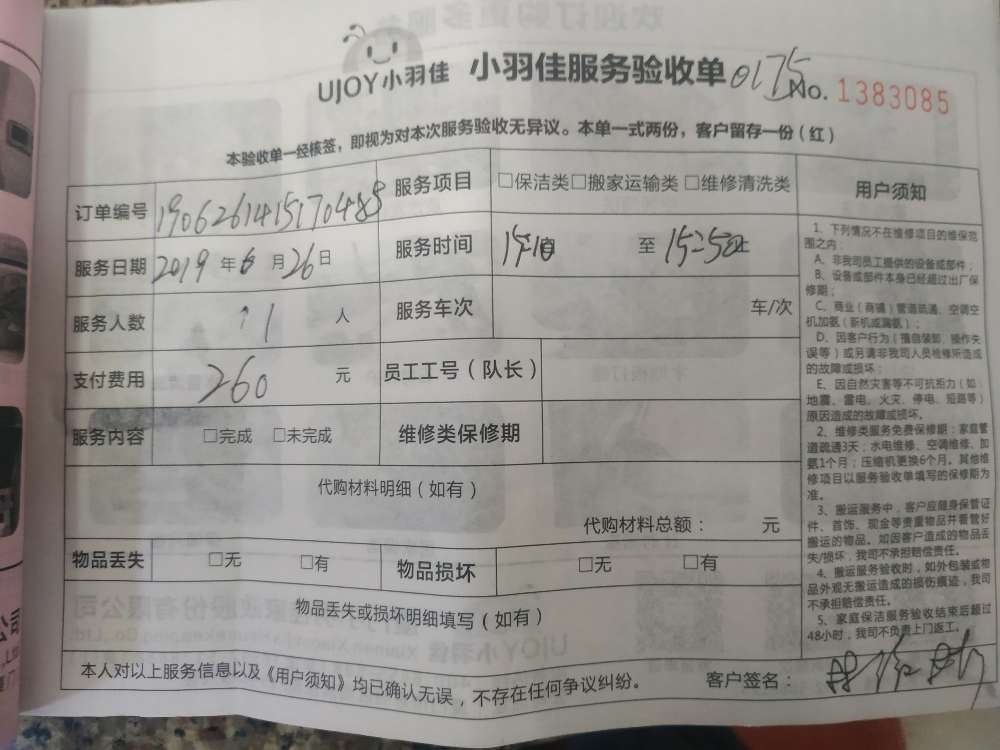 UJOY小羽佳 小羽佳服务验收单 0175 No. 1383085
本验收单一经核签，即视为对本次服务验收无异议。本单一式两份，客户留存一份（红）
订单编号 19062614151704485 服务项目 □保洁类□搬家运输类 □维修清洗类
服务日期 2019 年 6 月 26 日 服务时间 至
服务人数 1 人 服务车次 车/次
支付费用 260 元 员工工号（队长）
服务内容 □完成 □未完成 维修类保修期
代购材料明细（如有）
代购材料总额： 元
物品丢失 □无 □有 物品损坏 □无 □有
物品丢失或损坏明细填写（如有）
本人对以上服务信息以及《用户须知》均已确认无误，不存在任何争议纠纷。 客户签名：
用户须知
1、下列情况不在维修项目的维保范
围之内：
A、非我司员工提供的设备或部件；
B、设备或部件本身已经超过出厂保
修期；
C、商业（商铺）管道疏通、空调空
机加氨（新机或漏氨）；
D、因客户行为（擅自装卸、操作失
误等）或另请非我司人员检修所造成
的故障或损坏；
E、因自然灾害等不可抗拒力（如：
地震、雷电、火灾、停电、短路等）
原因造成的故障或损坏。
2、维修类服务免费保修期：家庭管
道疏通3天；水电维修、空调维修、加
氨1个月；压缩机更换6个月。其他维
修项目以服务验收单填写的保修期为
准。
3、搬运服务中，客户应随身保管证
件、首饰、现金等贵重物品并看管好
搬运的物品。如因客户造成的物品丢
失/损坏，我司不承担赔偿责任。
4、搬运服务验收时，如外包装或物
品外观无搬运造成的损伤痕迹，我司
不承担赔偿责任。
5、家庭保洁服务验收结束后超过
48小时，我司不负责上门返工。